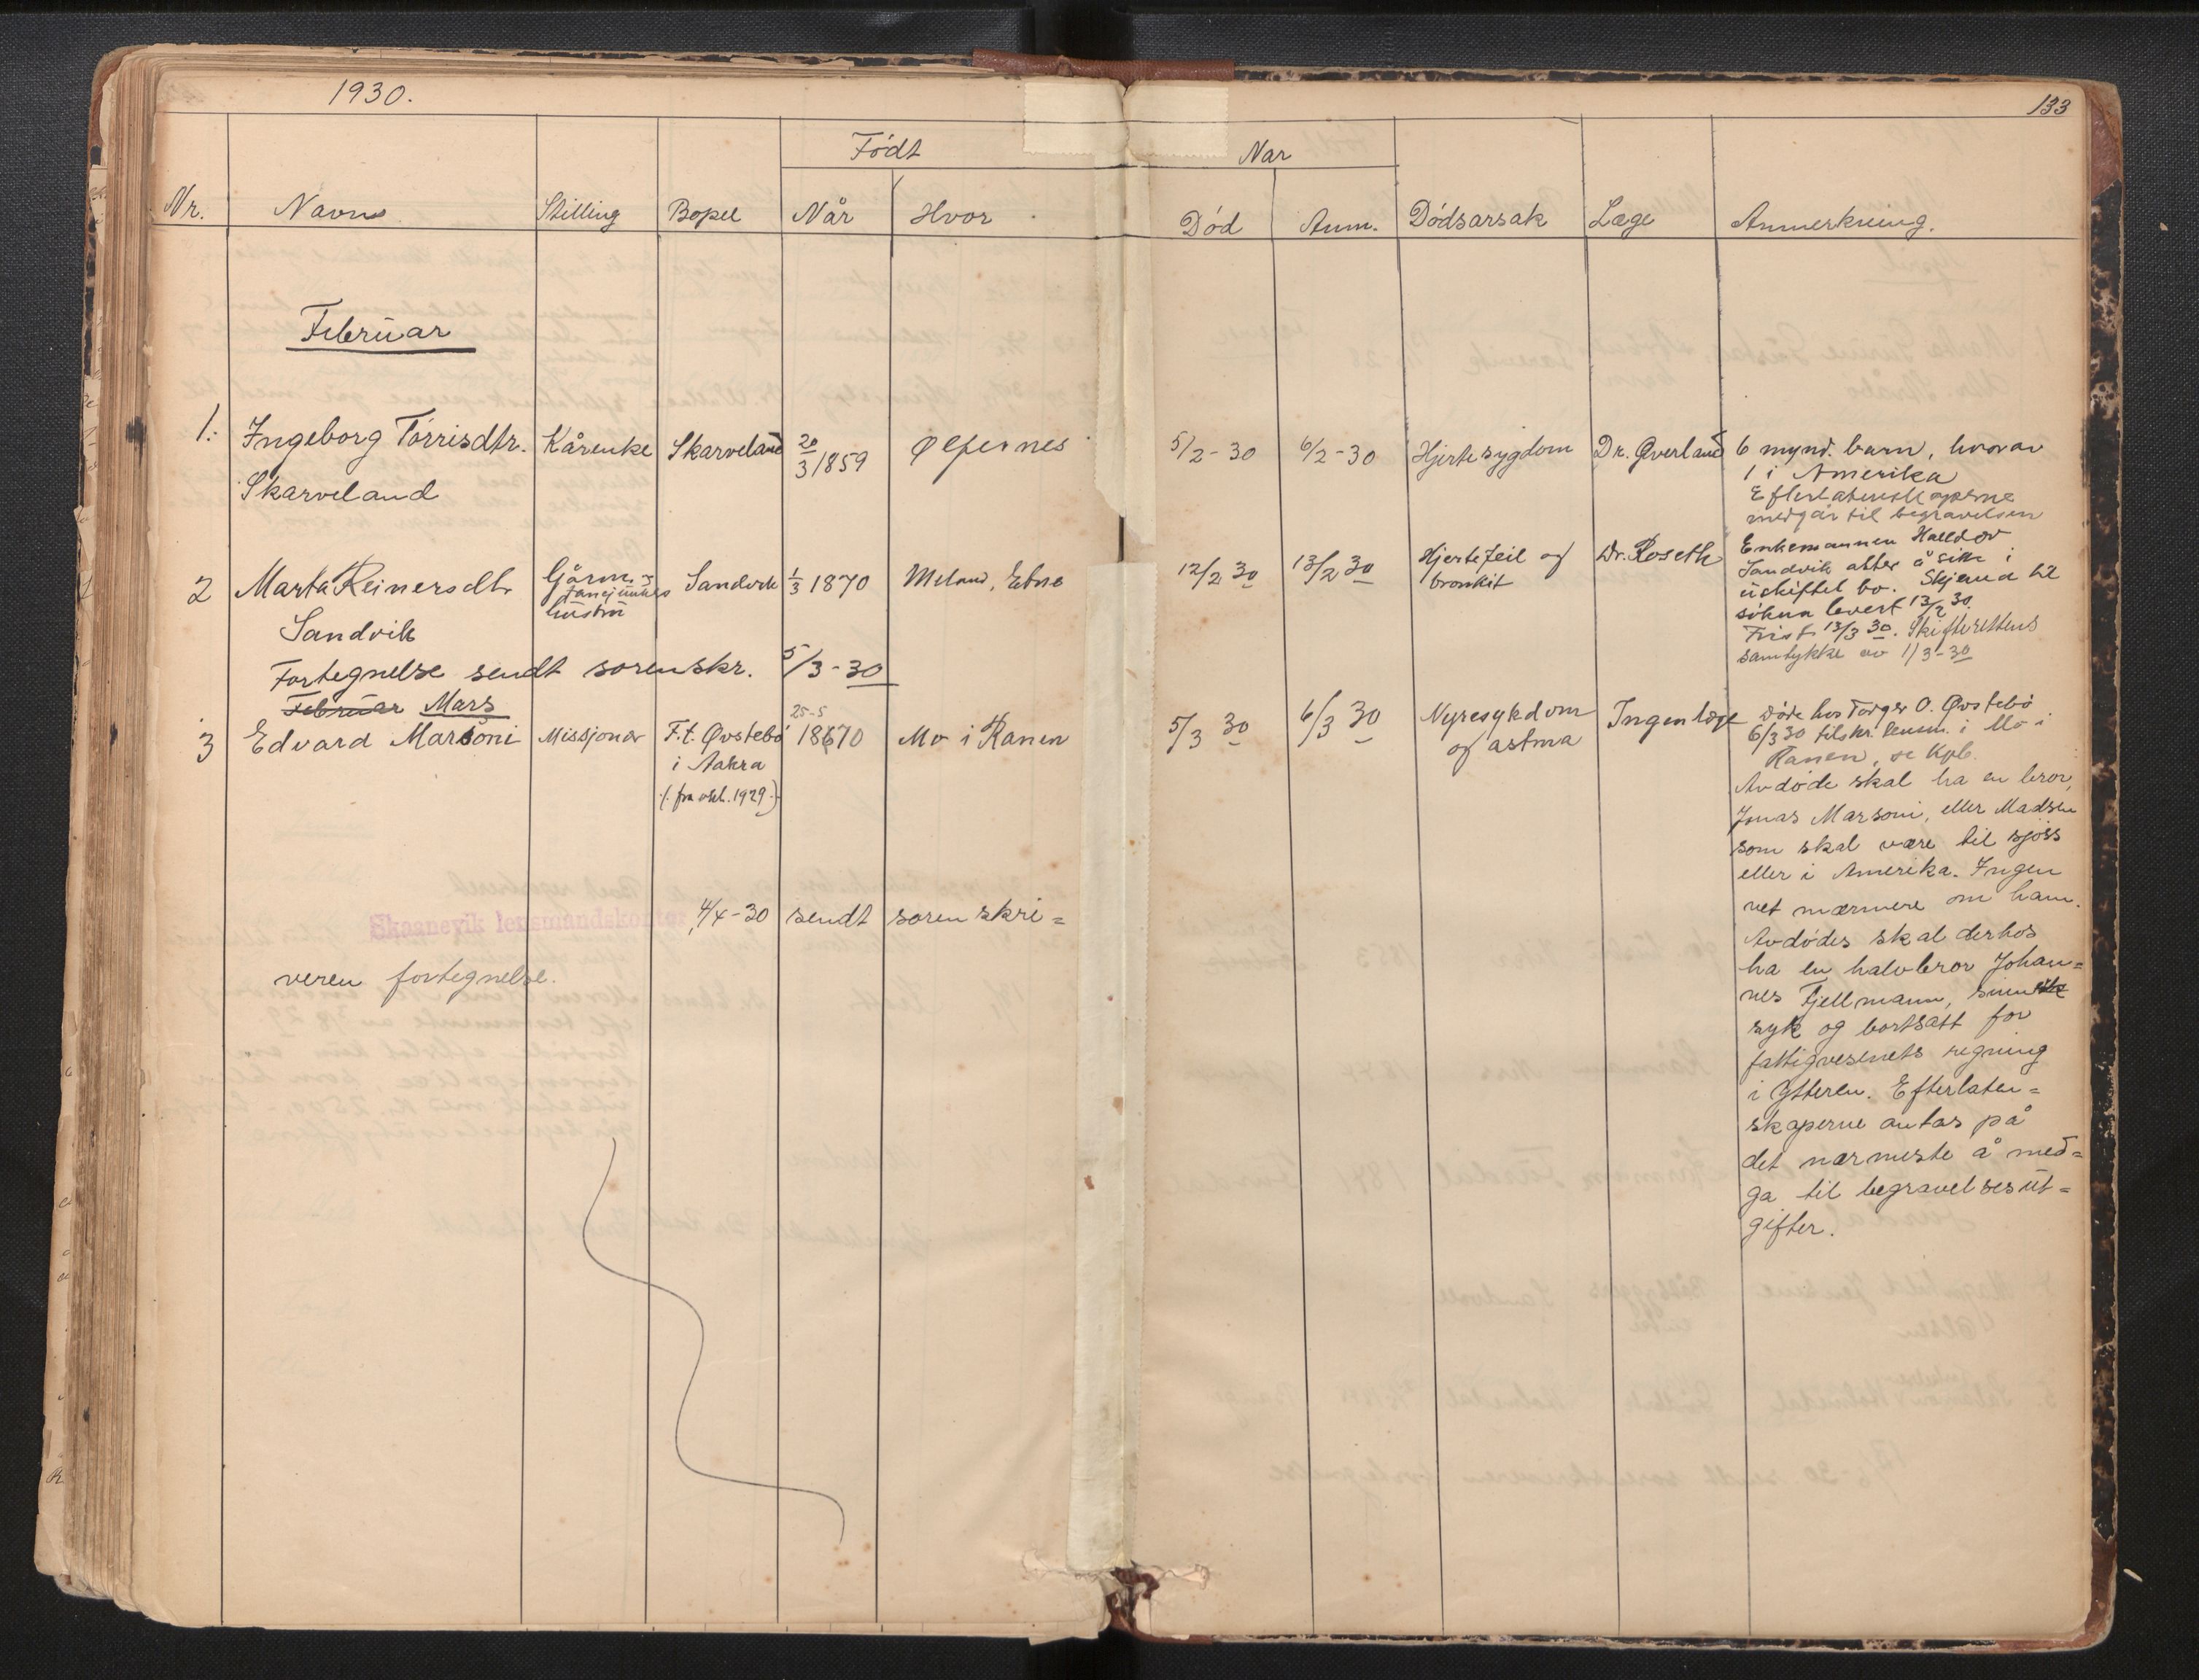 1930.
133
Født
Nar
Nr. Navn Stilling Bopel Når Hvor Død Anm. Dödsarsak Læge Anmerkning.
Februar
1. Ingeborg Tórrisdtr. Kårenke Skarveland 20/3 1859 Ølfernes 5/2-30 6/2-30 Hjertesygdom Dr. Øverland 6 mynd. barn, hvorav
Skarveland
1 i Amerika
Efterlatenskaperne
medgår til begravelsen
2 Marta Reinersdtr Gårm. Sandvik 1/3 1870 Meland, Etne 12/2 30 13/2 30 Hjertefeil og Dr. Roseth Enkemannen Halldor
hustru
bronkit
Sandvik
Sandvik akter å sitte i
uskiftet bo. Skjema til
søkna levert 13/2 30.
Frist 13/3 30. Skifterettens
samtykke av 1/3-30
Fortegnelse sendt sorenskr. 5/3-30
Februar Mars
3 Edvard Marsoni Missjonær F.t. Øvstebö 25-5 1870 Mo i Ranen 5/3 30 6/3 30 Nyresykdom Ingen læge Døde hos Torger O. Øvstebö
i Aakra
og astma
(fra okt. 1929)
6/3 30 tilskr. lensm. i Mo i
Ranen, se Kpb.
Avdöde skal ha en bror,
Jonas Marsoni, eller Madsen
som skal være til sjöss
eller i Amerika. Ingen
vet nærmere om ham.
Avdödes skal derhos
ha en halvbror Johan=
nes Fjellmann, sinns
syk og bortsatt for
fattigvesenets regning
i Ytteren. Efterlaten=
skaperne antas på
det nærmeste å med=
ga til begravelsesut=
gifter.
Skaanevik lensmandskontor
4/4-30 sendt sorenskri=
veren fortegnelse.